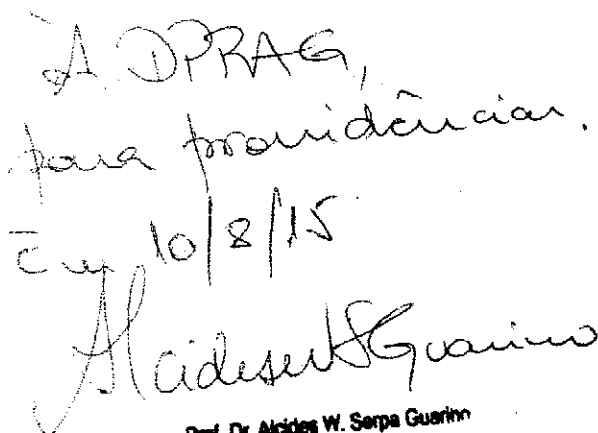 À DPRAG,
para providências.
Em 10/8/15
AlcidesWSGuarino
Prof. Dr. Alcides W. Serpa Guarino